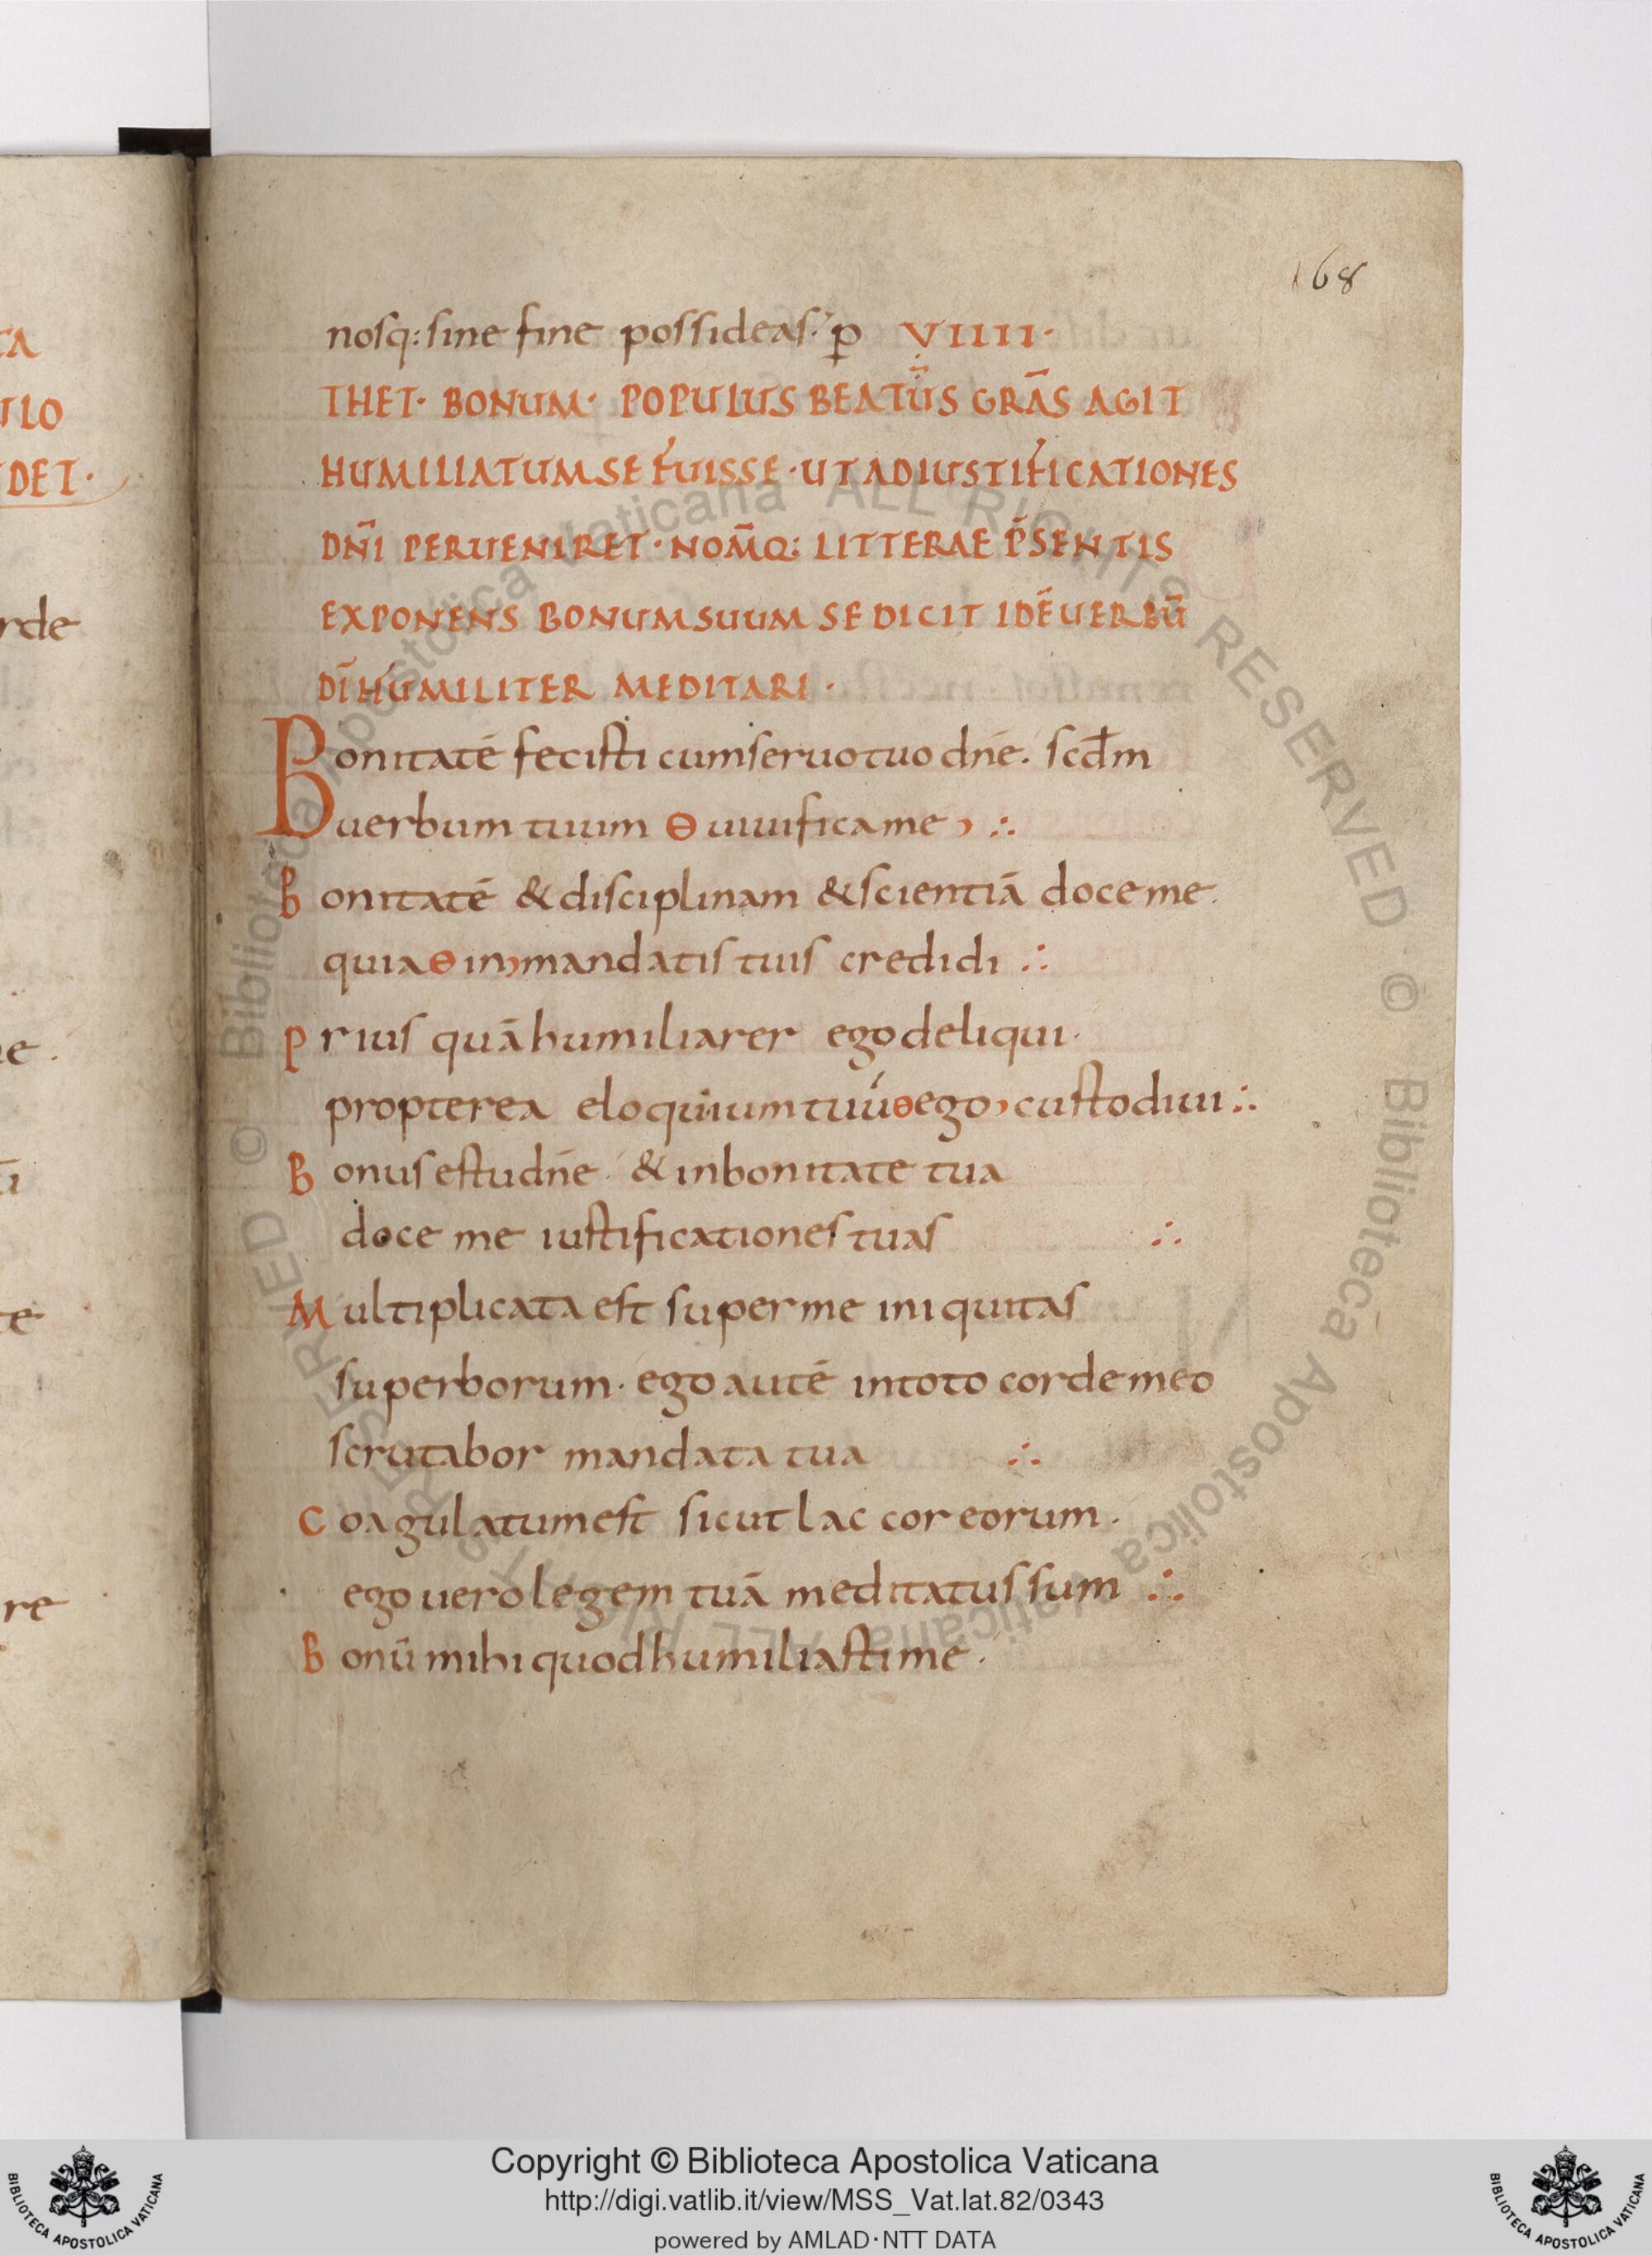 168
nosq: sine fine possideas. ꝑ VIIII.
THET. BONUM. POPULUS BEATUS GRĀS AGIT
HUMILIATUM SE FUISSE. UT AD IUSTIFICATIONES
DÑI PERUENIRET. NOM̄Q: LITTERAE P̄SENTIS
EXPONENS BONUM SUUM SE DICIT IDĒ UERBŪ
DĪ HUMILITER MEDITARI.
Bonitatē fecisti cum seruo tuo dn̄e. scd̄m
uerbum tuum Θ uiuifica me ·:
Bonitatē & disciplinam & scientiā doce me.
quia Θ in mandatis tuis credidi ·:
Prius quā humiliarer ego deliqui.
propterea eloquium tuū Θ ego custodiui ·:
Bonus es tu dn̄e. & in bonitate tua
doce me iustificationes tuas ·:
Multiplicata est super me iniquitas
superborum. ego autē in toto corde meo
scrutabor mandata tua ·:
Coagulatum est sicut lac cor eorum.
ego uero legem tuā meditatus sum ·:
Bonū mihi quod humiliasti me.
TA
TIO
DET.
rde
e.
te
re
© Biblioteca Apostolica Vaticana ALL RIGHTS RESERVED © Biblioteca Apostolica Vaticana ALL RIGHTS RESERVED
Copyright © Biblioteca Apostolica Vaticana
http://digi.vatlib.it/view/MSS_Vat.lat.82/0343
powered by AMLAD·NTT DATA
BIBLIOTECA APOSTOLICA VATICANA
BIBLIOTECA APOSTOLICA VATICANA